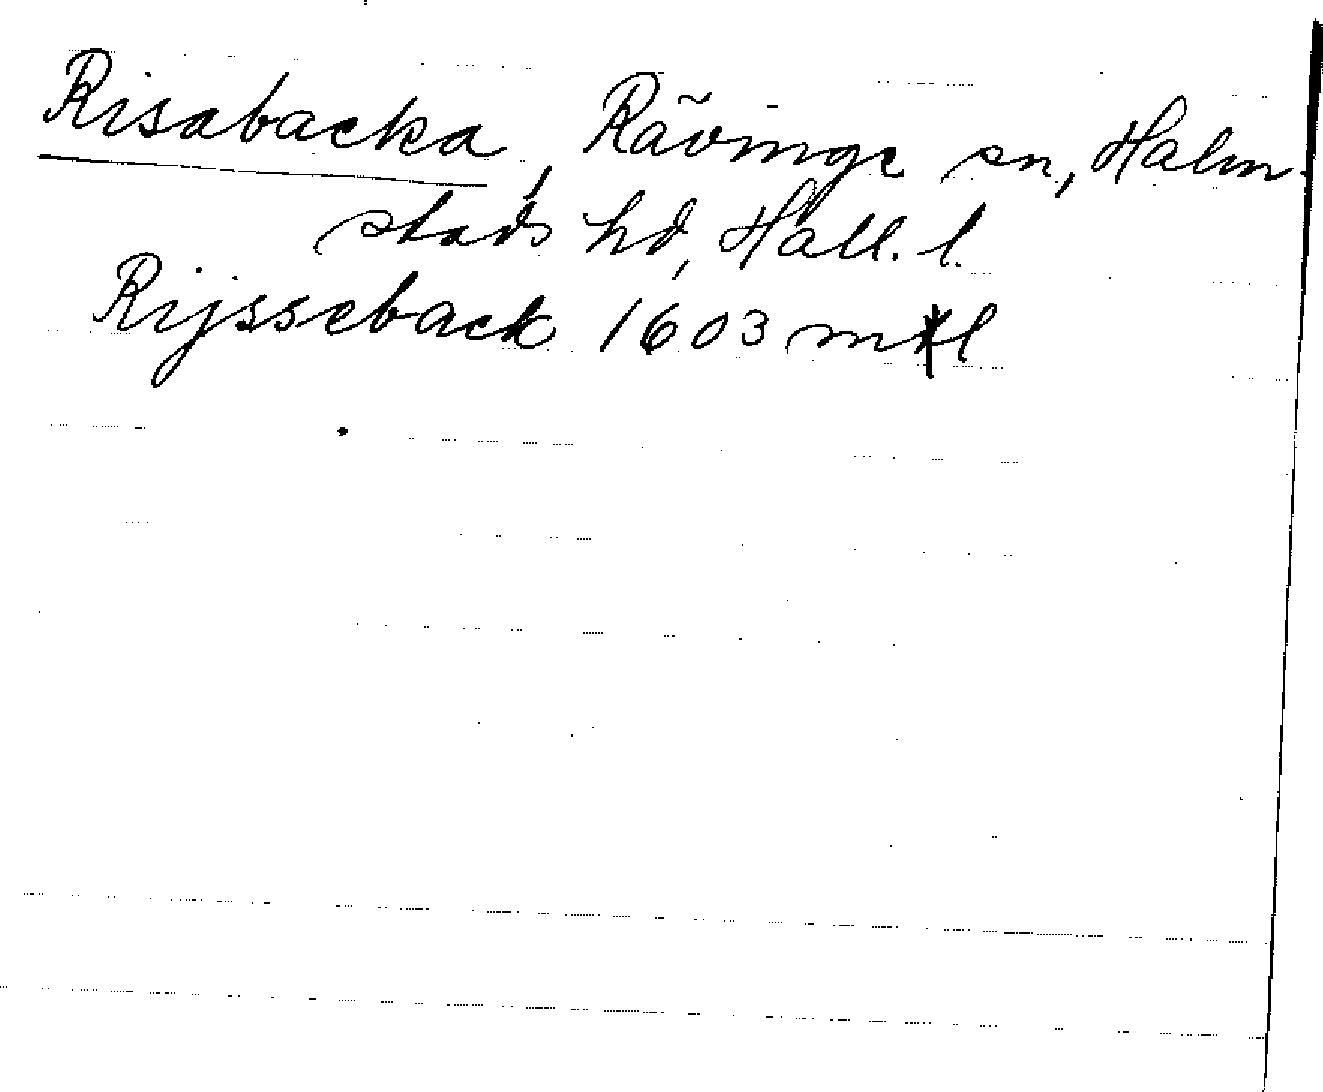 Risabacka, Rävinge sn, Halm-
stads hd, Hall. l.
Rijsseback 1603 mtl